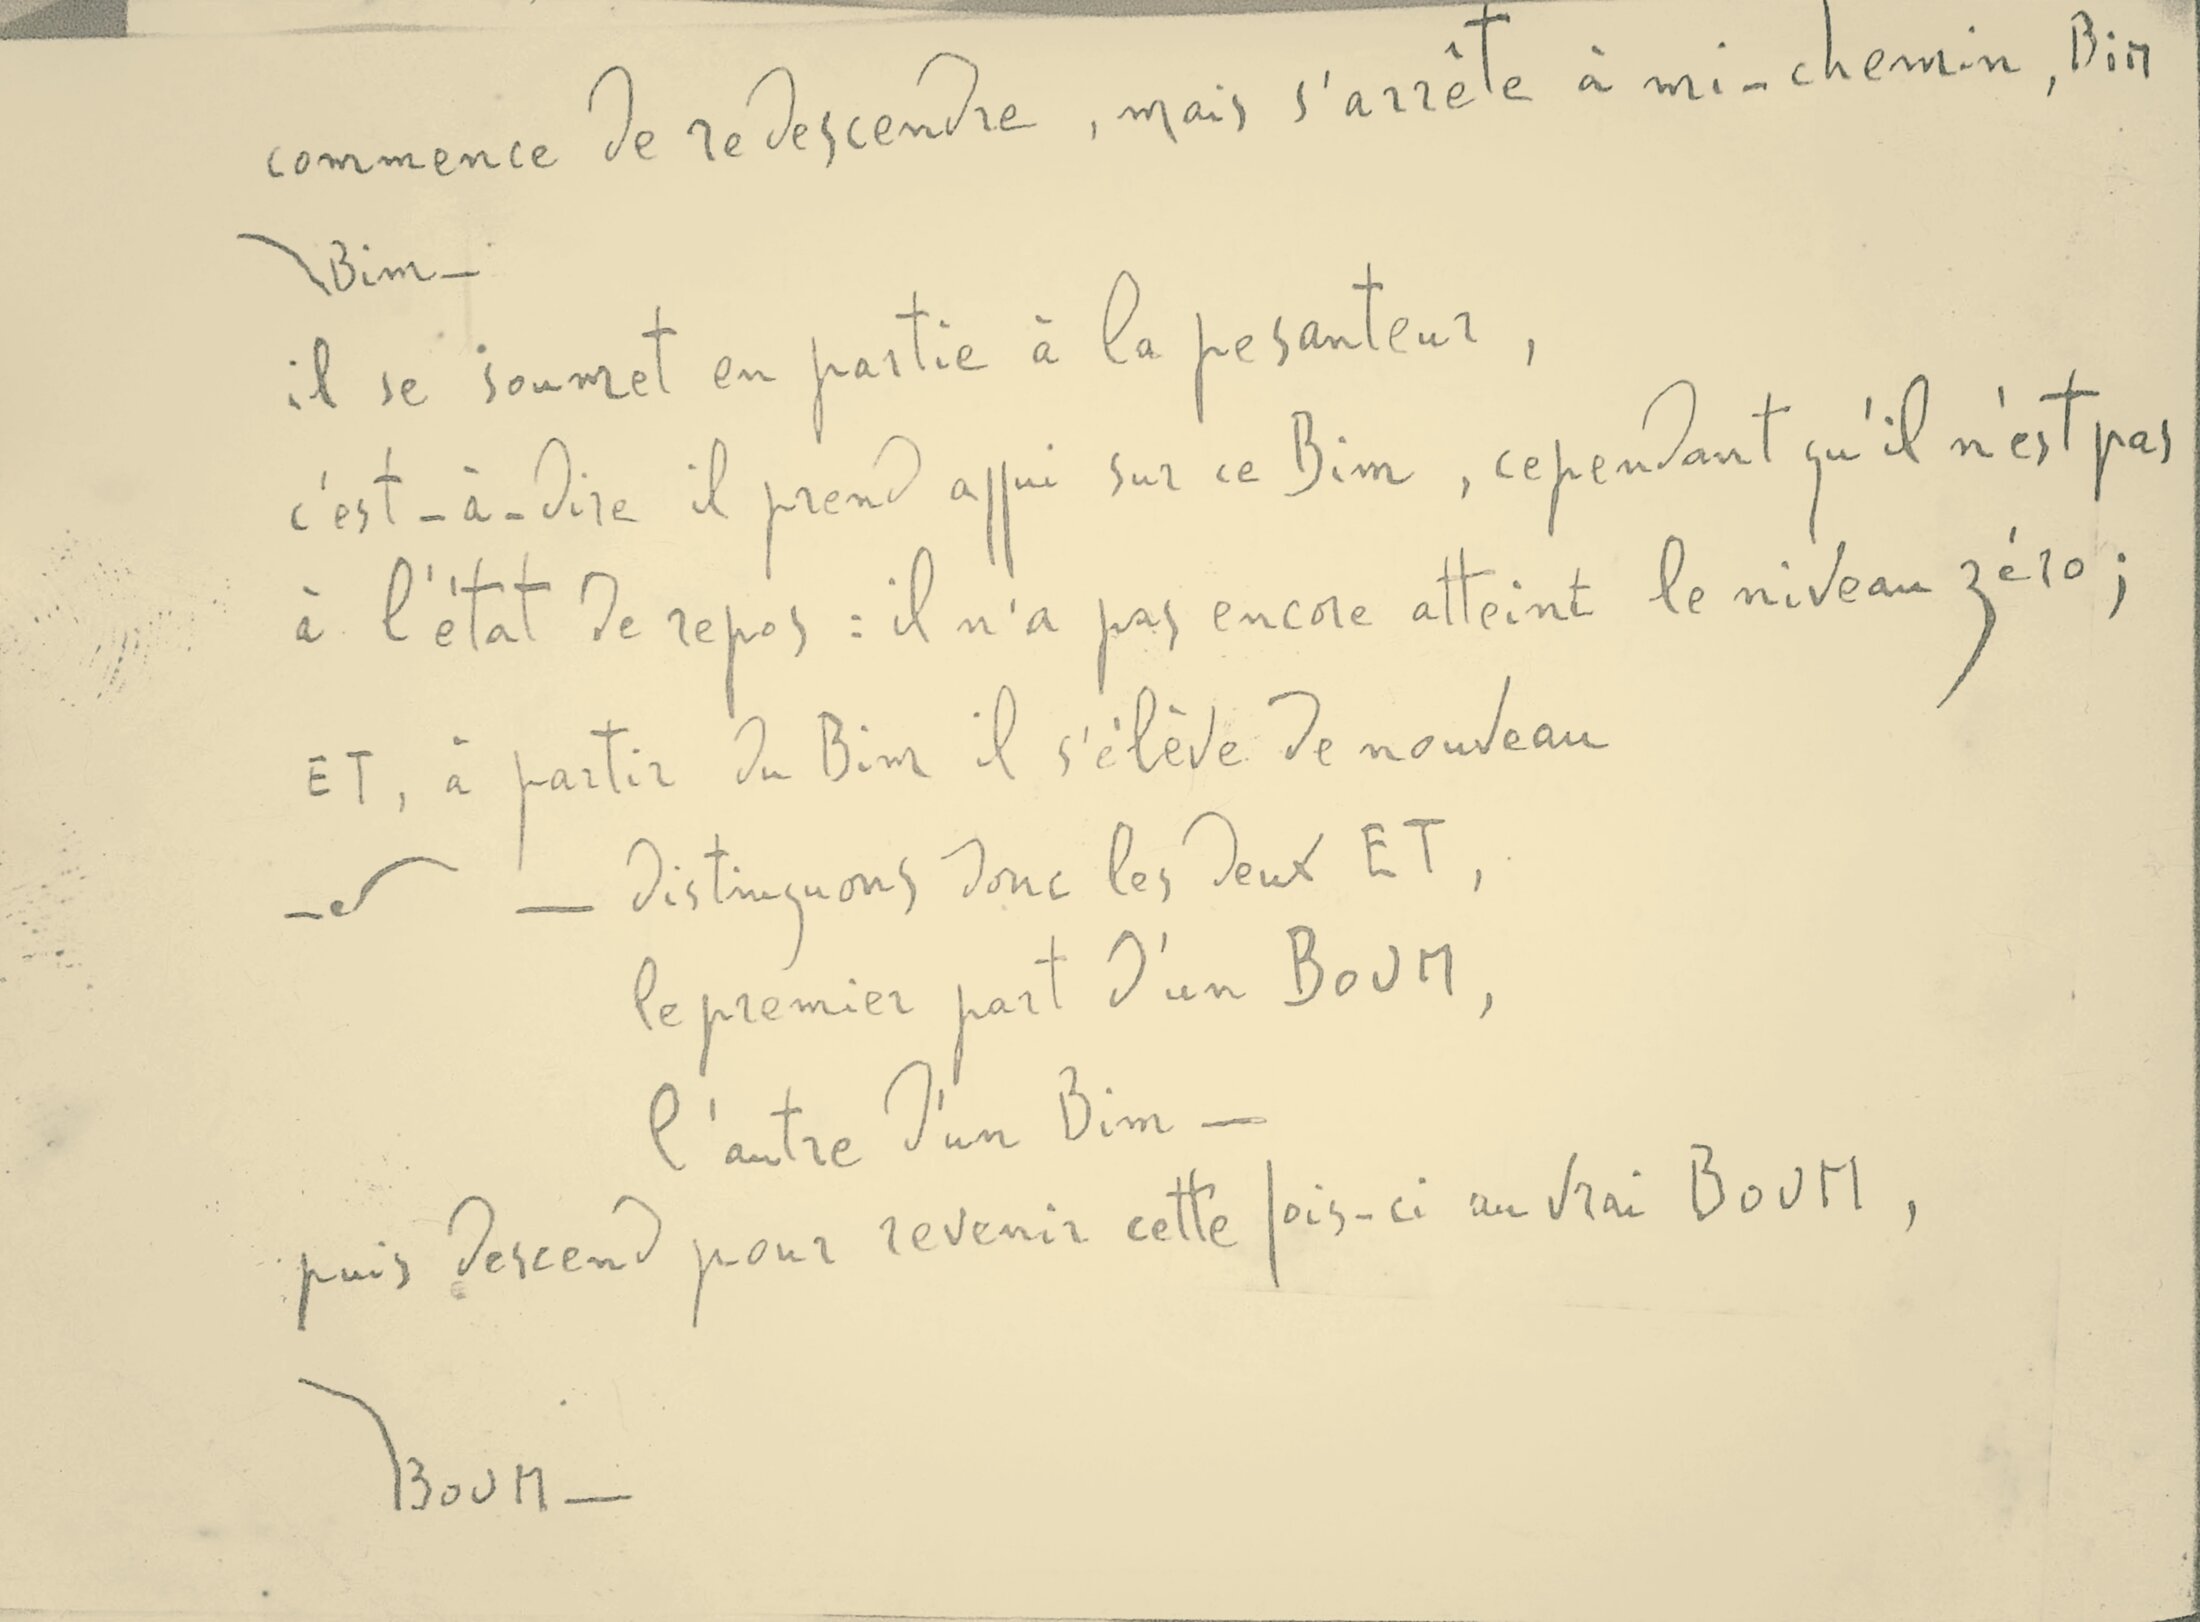 commence de redescendre, mais s'arrête à mi-chemin, BiM
Bim —
il se soumet en partie à la pesanteur,
c'est-à-dire il prend appui sur ce Bim, cependant qu'il n'est pas
à l'état de repos : il n'a pas encore atteint le niveau zéro ;
ET, à partir du Bim il s'élève de nouveau
— distinguons donc les deux ET,
le premier part d'un BoUM,
l'autre d'un Bim —
puis descend pour revenir cette fois-ci au vrai BoUM,
BoUM —